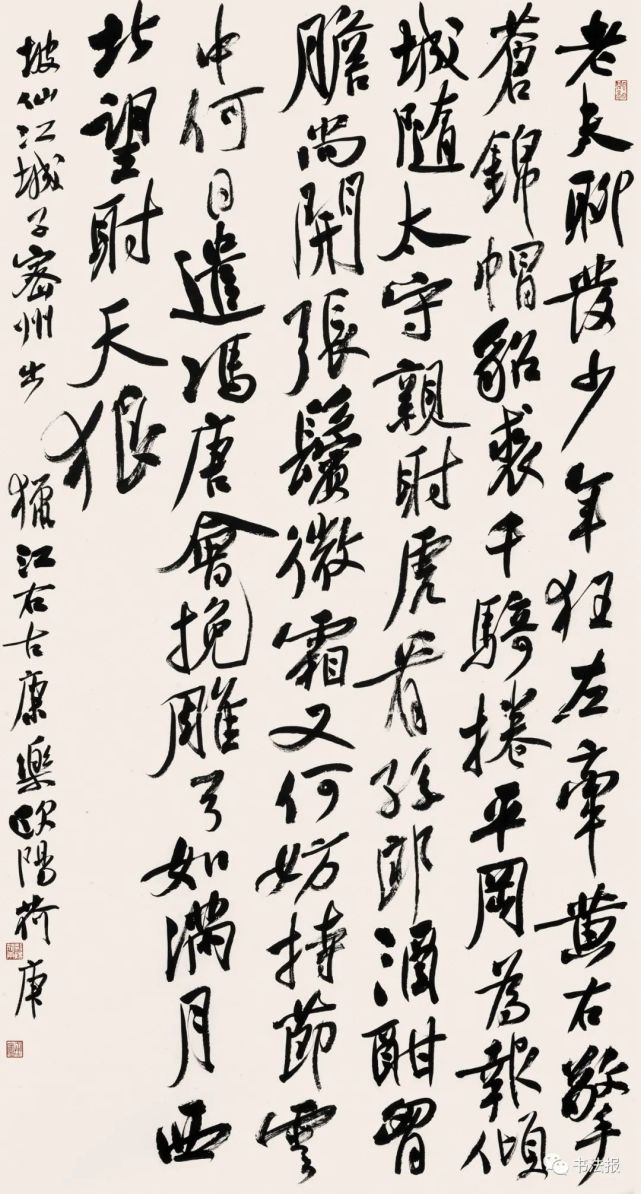 老夫聊發少年狂左牽黃右擎
蒼錦帽貂裘千騎捲平岡為報傾
城隨太守親射虎看孫郎酒酣胷
膽尚開張鬢微霜又何妨持節雲
中何日遣馮唐會挽雕弓如滿月西
北望射天狼
坡仙江城子密州出獵江右古康樂歐陽荷庚
书法报